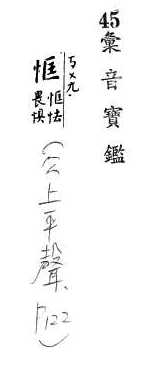 45彙音寶鑑
恇
ㄎㄨㄤ
恇怯
畏惧
(公上平聲、P122)